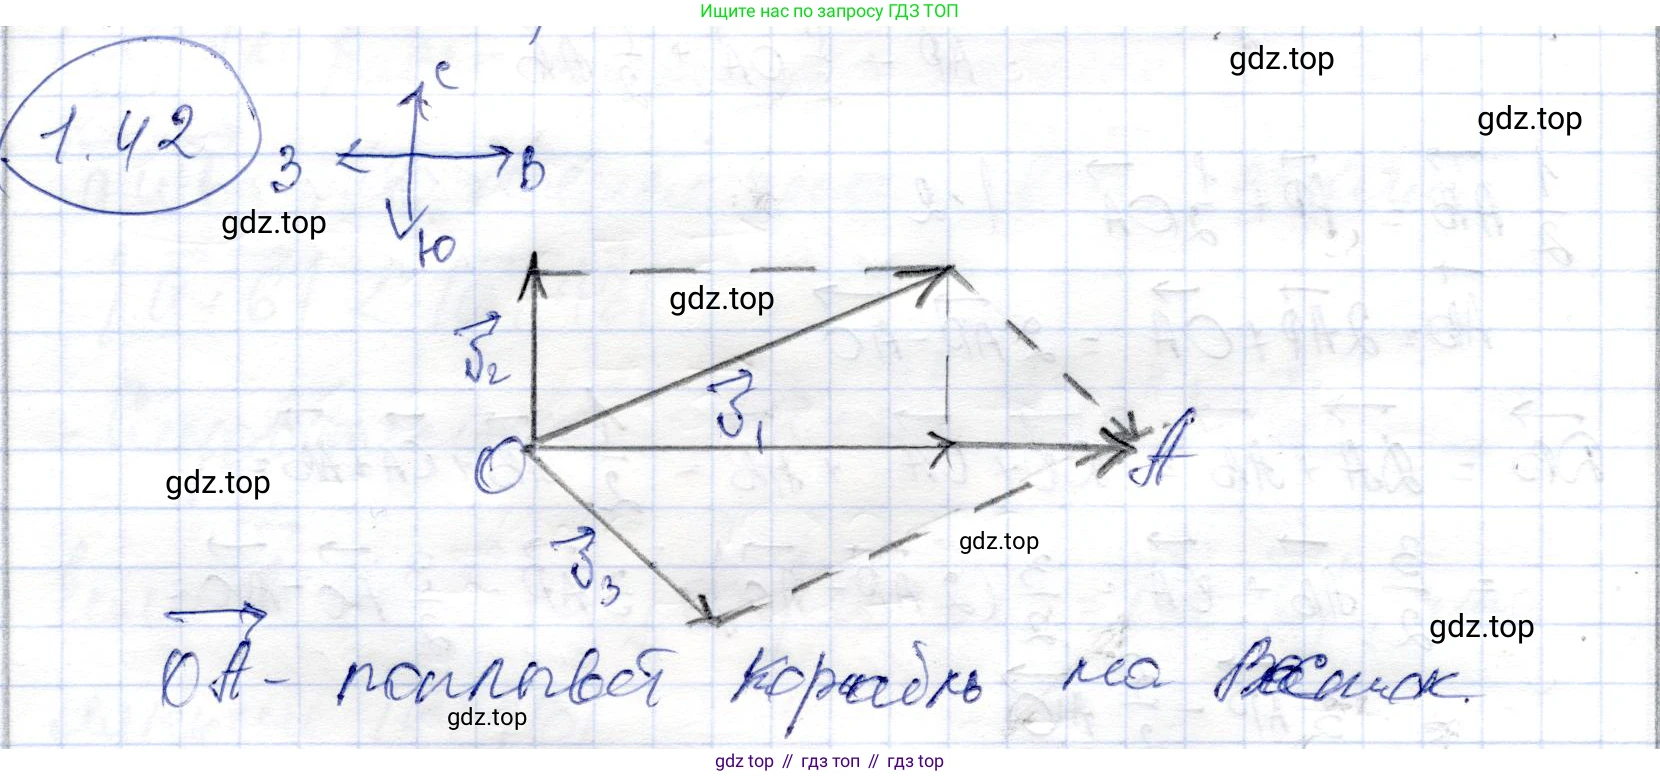 Ищите нас по запросу ГДЗ ТОП
gdz.top
gdz.top
1.42
С
З
В
Ю
gdz.top
gdz.top
v₂
v₁
О
А
gdz.top
v₃
gdz.top
gdz.top
ОА - поплывёт корабль на Восток.
gdz.top
gdz top // гдз топ // gdz top